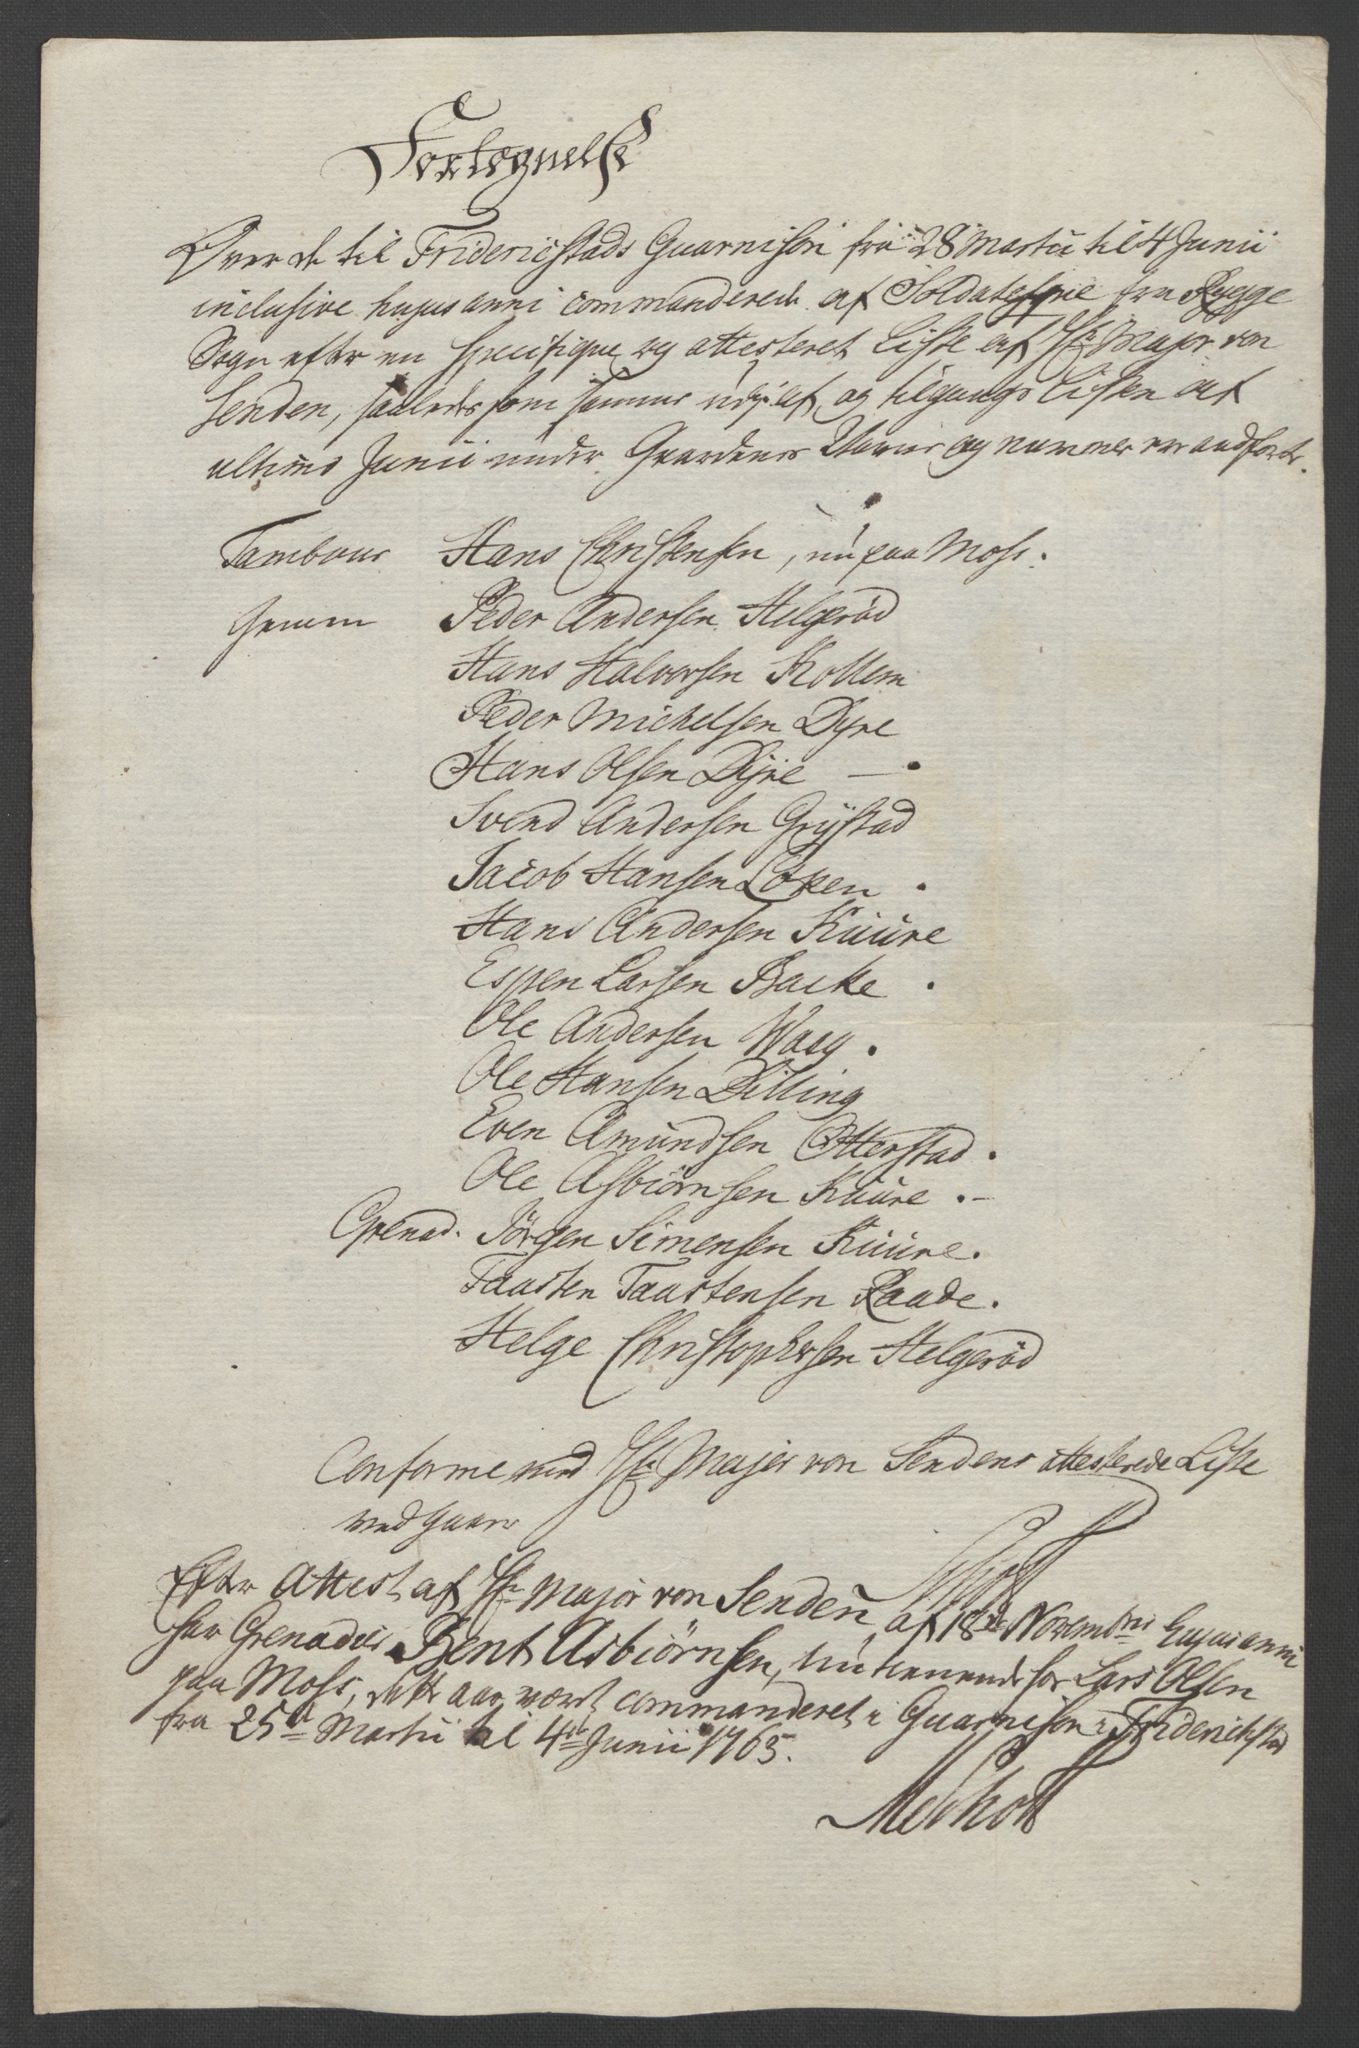 Fortegnelse
Over de til Fridericstads Guarnison fra 28 Martii til 4 Junii
inclusive hujus anni commanderede af Soldatesqve fra Rygge
Sogn efter en specifique og attesteret Liste af Hr Major von
Senden, saaledes som samme udj af og tilgangs Listen af
ultimo Junii under Gaardenes Navne og nummer er andført.
Tambour Hans Christensen, nu paa Moss.
Gemeen Peder Andersen Helgerød
Hans Halvorsen Kollem
Peder Michelsen Dyre
Hans Olsen Dyre —.
Svend Andersen Grystad
Jacob Hansen Løken .
Hans Andersen Kuure
Espen Larsen Backe .
Ole Andersen Waag .
Ole Hansen Dilling
Even Amundsen Otterstad .
Ole Asbiørnsen Kuure .-
Grenad. Jørgen Simensen Kuure.
Taasten Taastensen Raade.
Helge Christophersen Helgerød
Conforme med Hr Major von Sendens attesterede Liste
vedgaaer
Efter Attest af Hr Major von Senden af 18de Novembris hujus anni
har Grenadeer Bent Asbiørnsen, nu tienende for Lars Olsen
paa Moss, dette aar været commanderet i Guarnison i Friderichstad
fra 25de Martii til 4de Junii 1765.